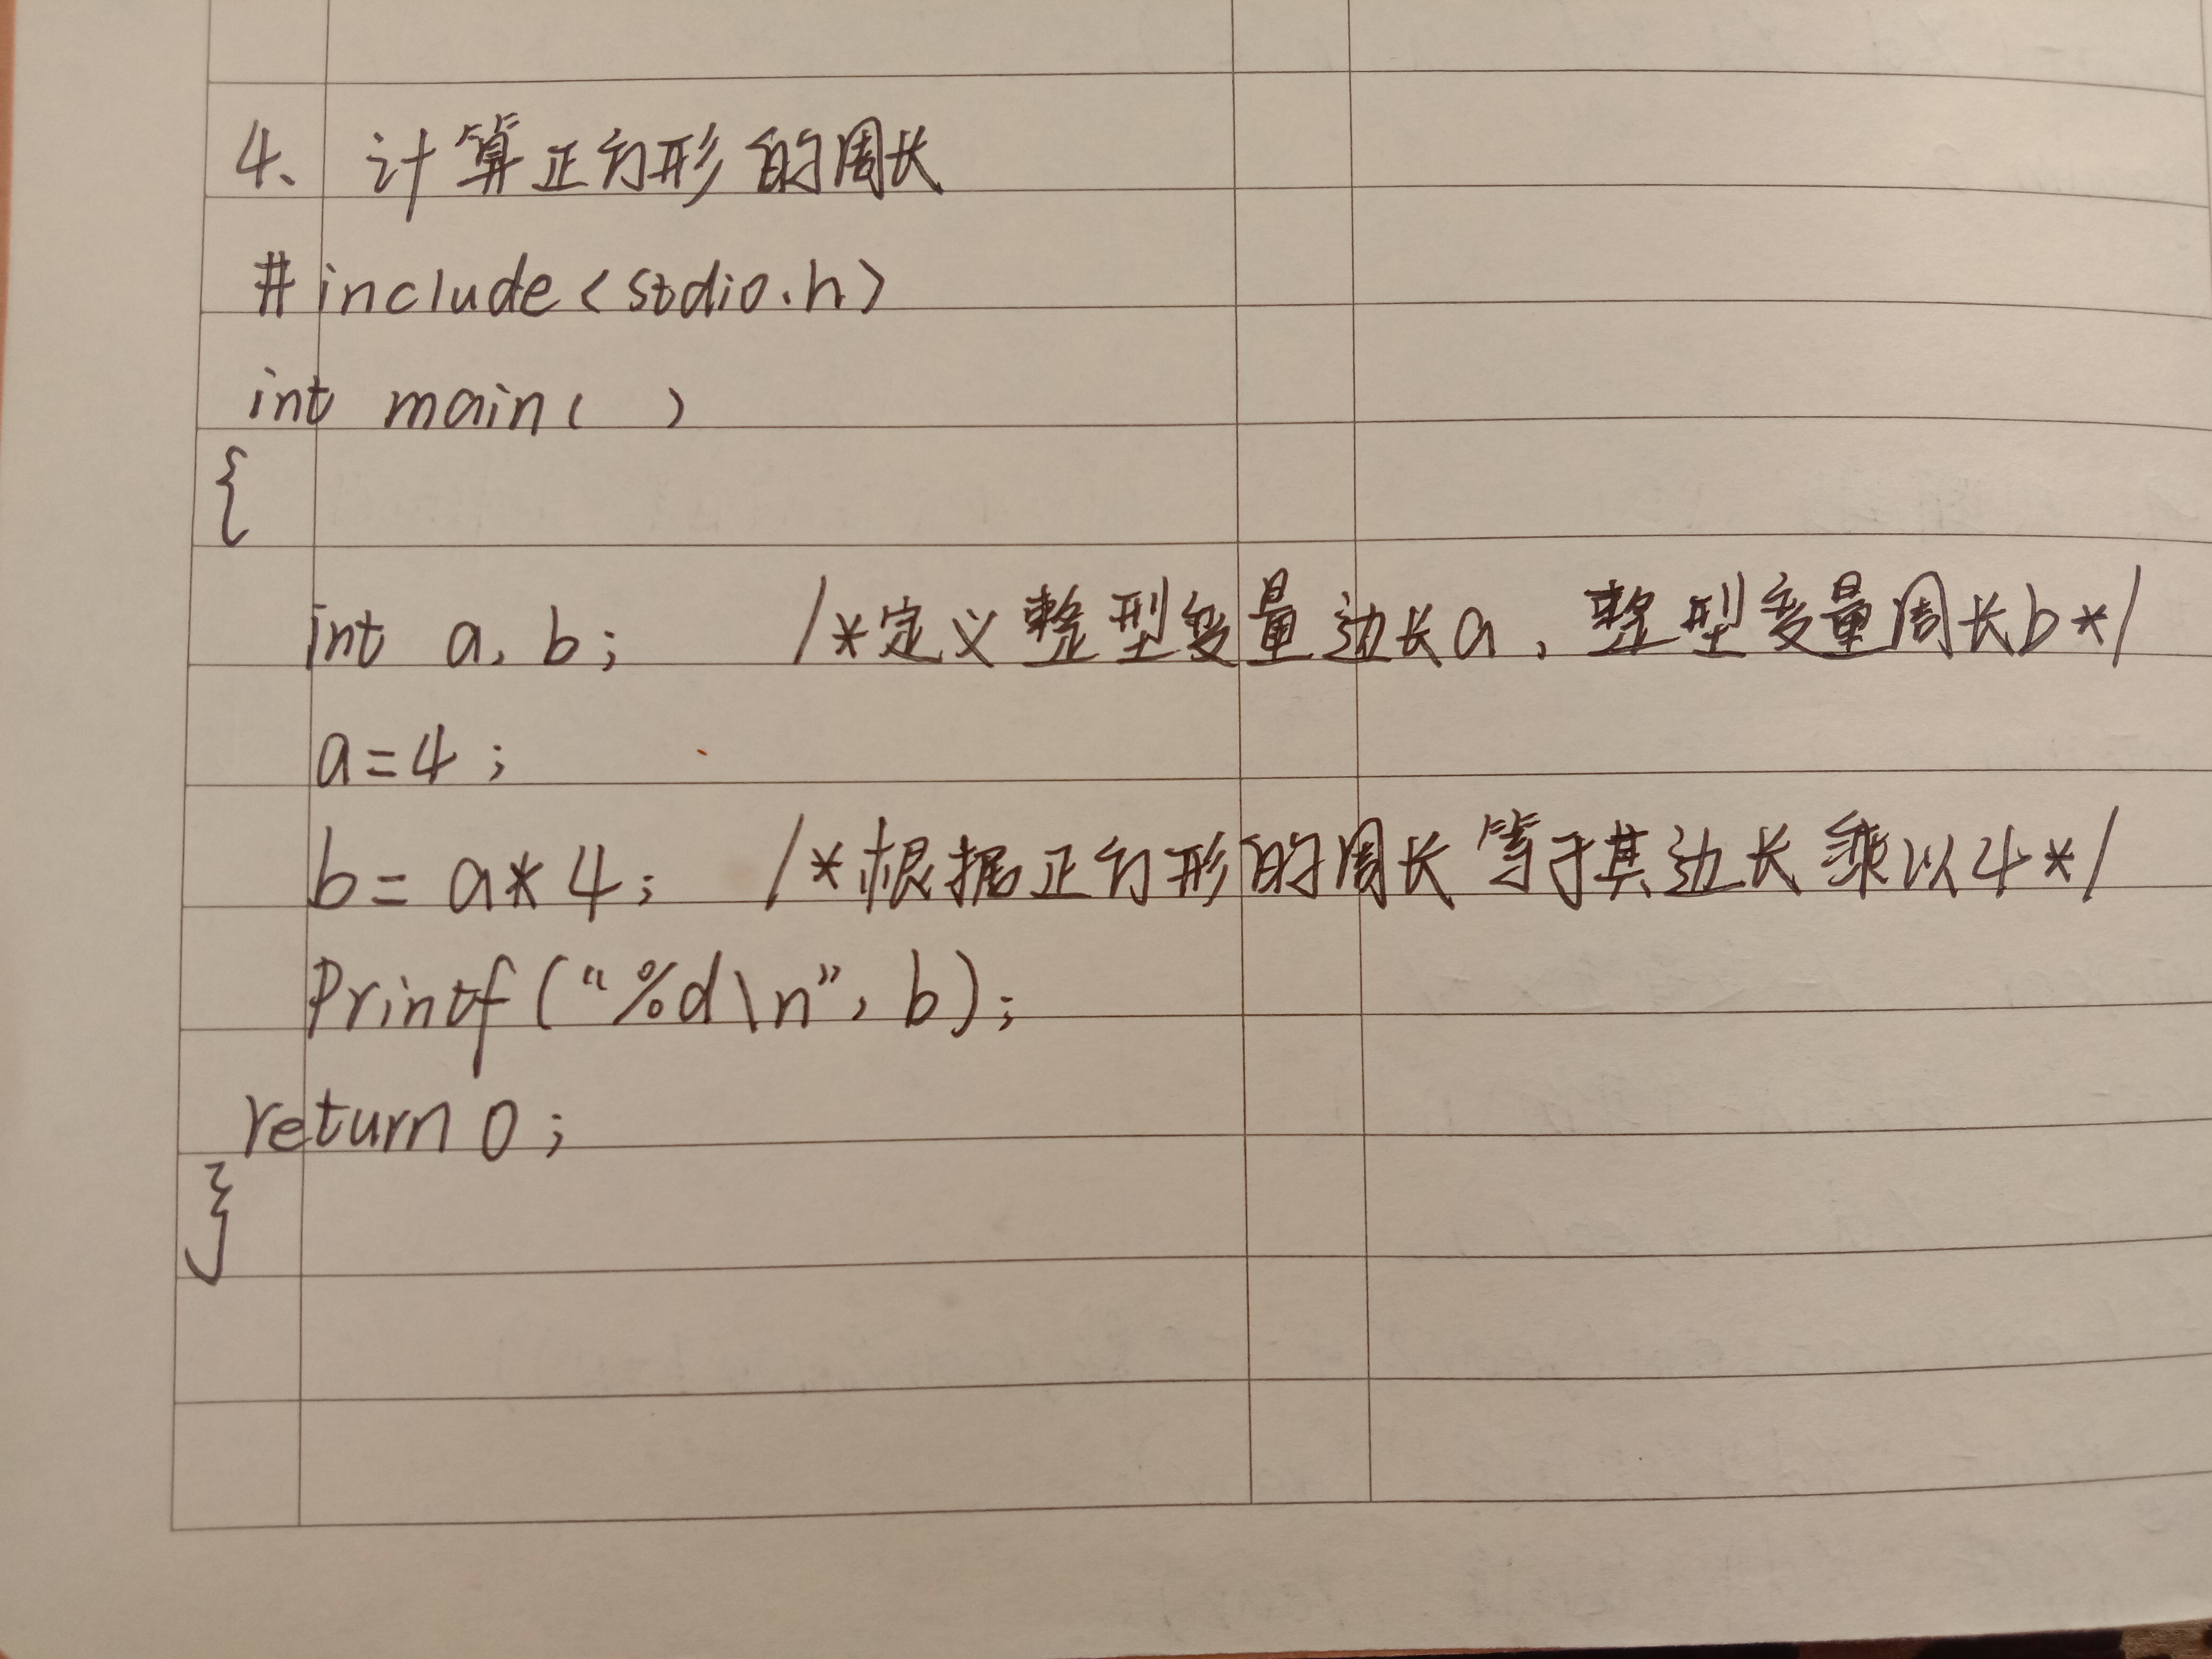 4、计算正方形的周长
#include<stdio.h>
int main( )
{
int a, b; /*定义整型变量边长a，整型变量周长b*/
a=4;
b=a*4; /*根据正方形的周长等于其边长乘以4*/
Printf(“%d\n”, b);
return 0;
}